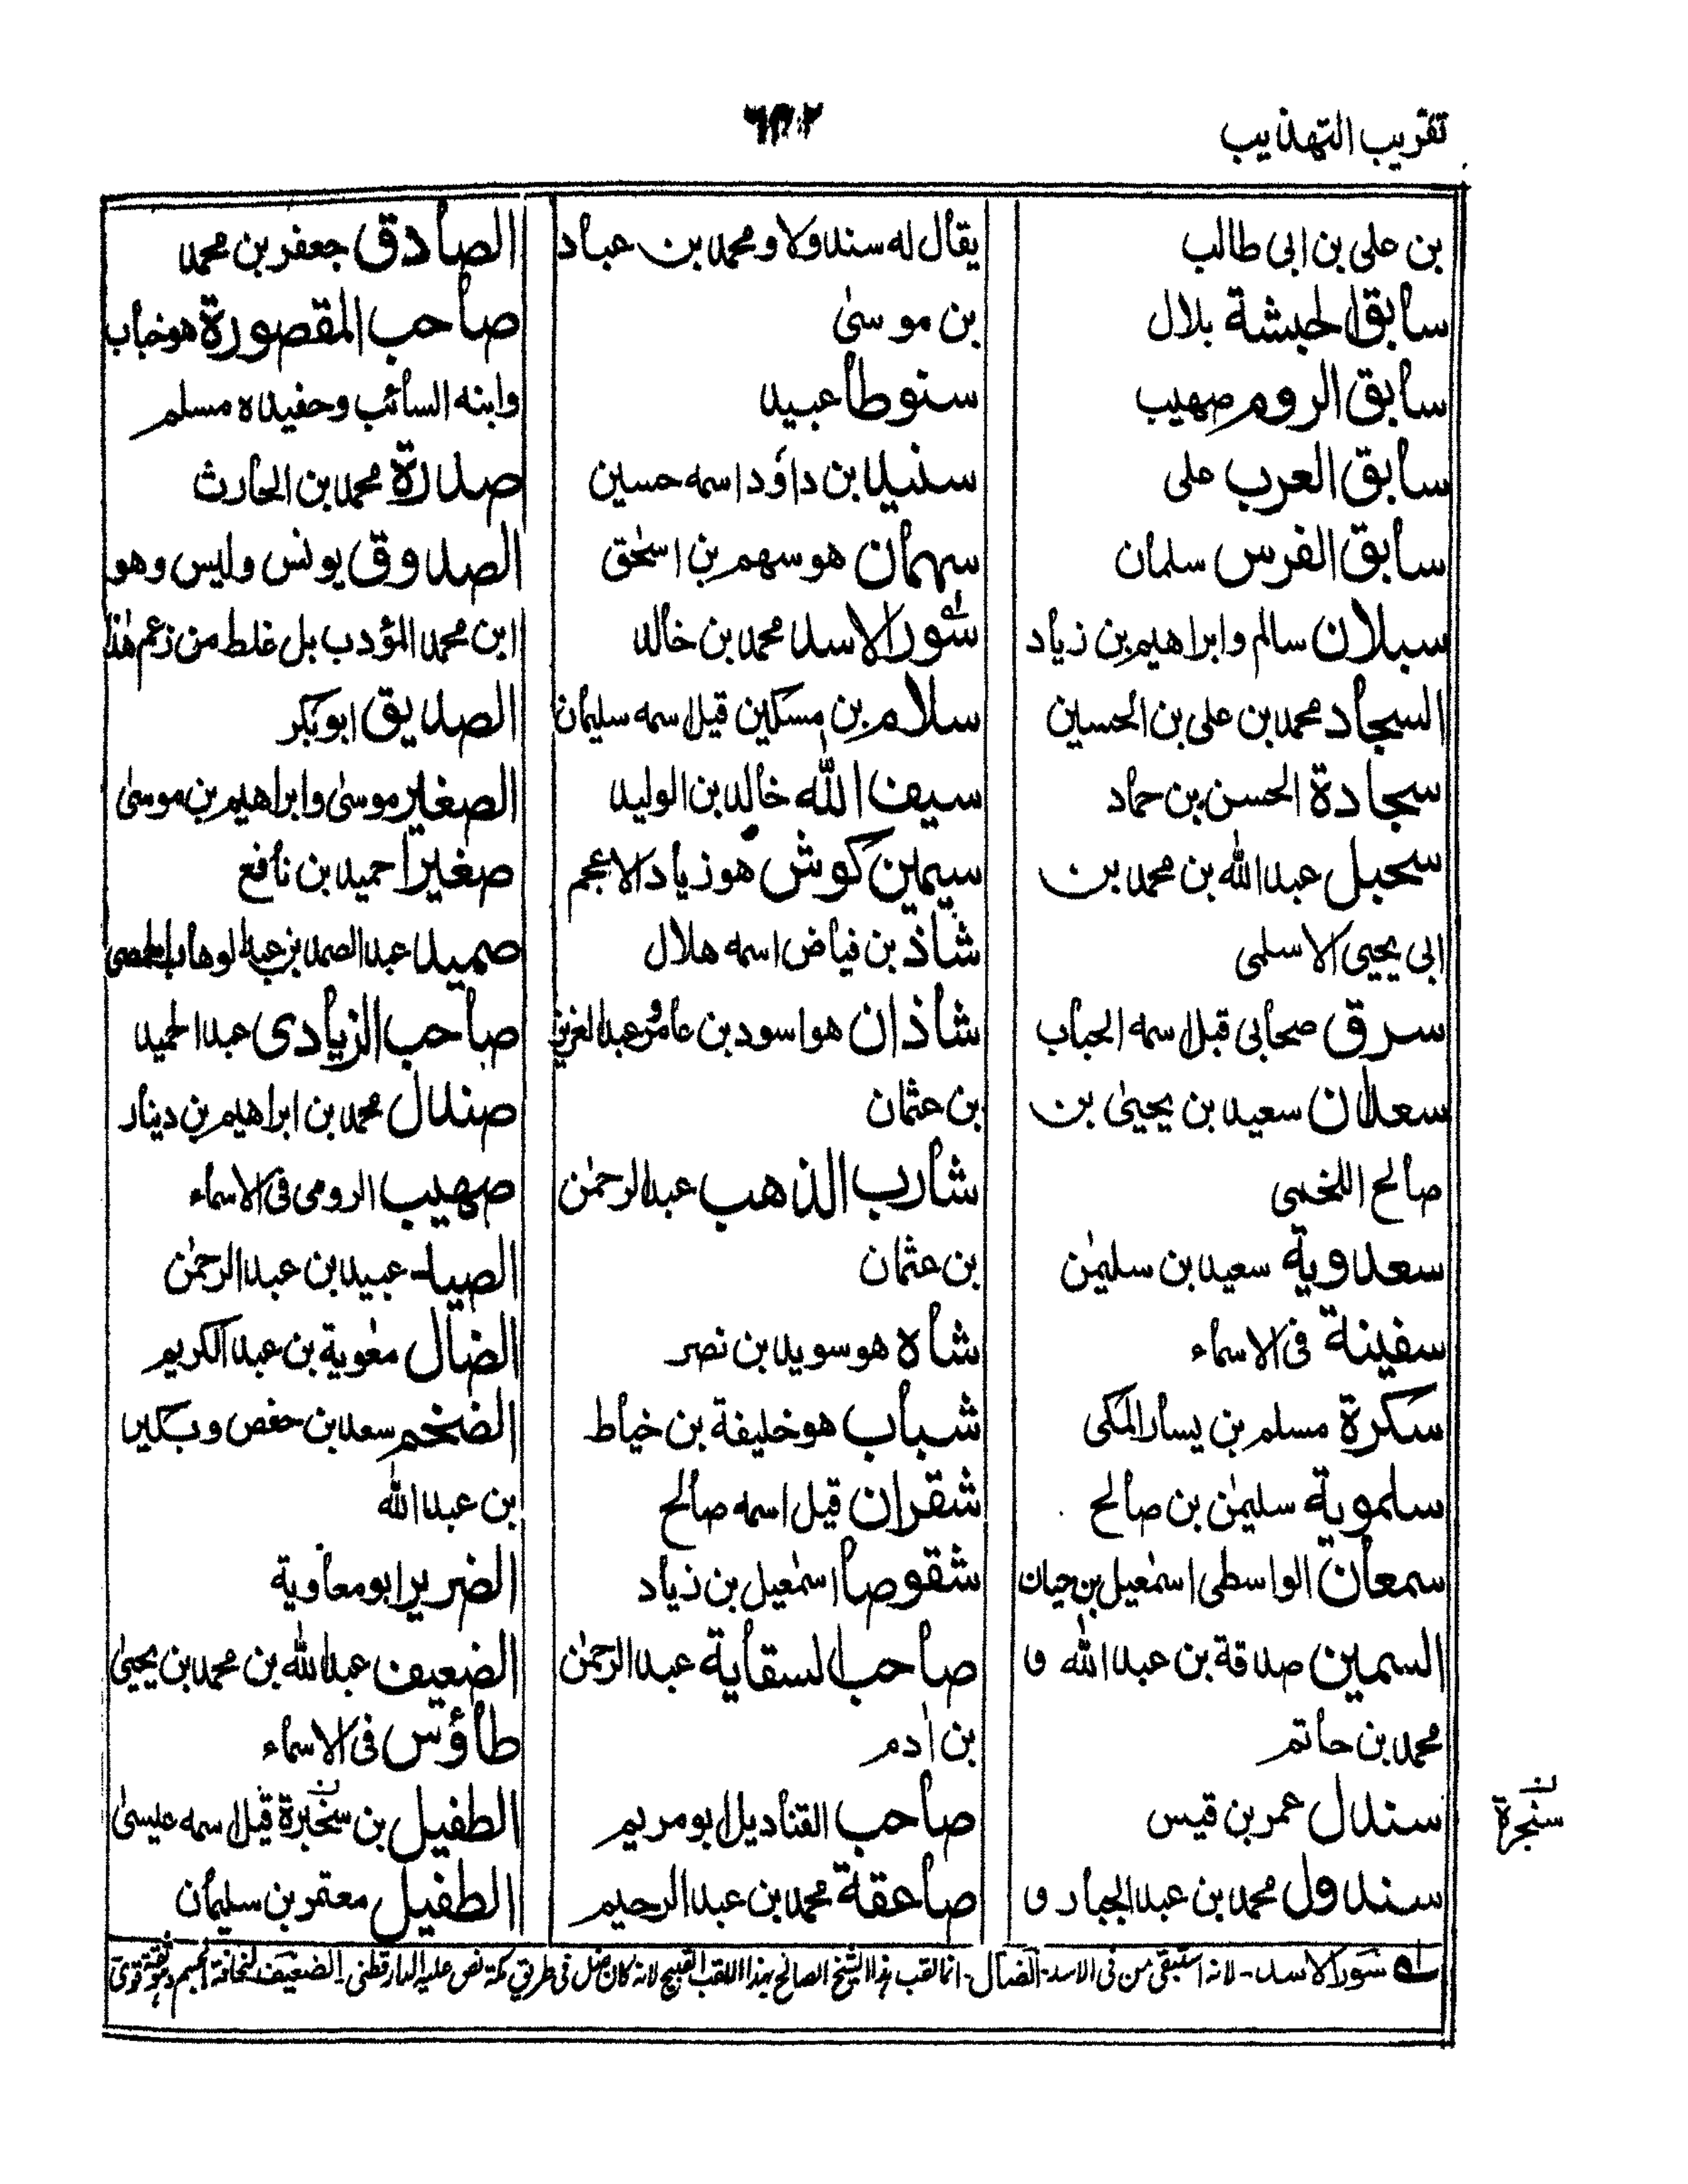 تقريب التهذيب
بن علی بن ابی طالب
سابق الحبشة بلال
سابق الروم صهيب
سابق العرب علی
سابق الفرس سلمان
سبلان سالم وابراهيم بن زياد
السجاد محمد بن علی بن الحسين
سجادة الحسن بن حماد
سحبل عبد الله بن محمد بن
ابی يحيی الاسلمی
سرق صحابی قيل اسمه الحباب
سعدان سعيد بن يحيیٰ بن
صالح اللخمی
سعدوية سعيد بن سليمٰن
سفينة فی الاسماء
سكرة مسلم بن يسار المکی
سلموية سليمٰن بن صالح
سمعان الواسطی اسمٰعيل بن حيان
السمين صدقة بن عبد الله و
محمد بن حاتم
سندل عمر بن قيس
سندول محمد بن عبد الجبار و
يقال له سندولا و محمد بن عباد
بن موسیٰ
سنوطا عبيد
سنيد بن داؤد اسمه حسين
سهمان هو سهم بن اسحٰق
سؤر الاسد محمد بن خالد
سلام بن مسکين قيل اسمه سليمان
سيف الله خالد بن الوليد
سيمين كوش هو زياد الاعجم
شاذ بن فياض اسمه هلال
شاذان هو اسود بن عامر و عبد العزيز
بن عثمان
شارب الذهب عبد الرحمٰن
بن عثمان
شاه هو سويد بن نصر
شباب هو خليفة بن خياط
شقران قيل اسمه صالح
شقوصا اسمٰعيل بن زياد
صاحب السقاية عبد الرحمٰن
بن اٰدم
صاحب القناديل ابو مريم
صاعقة محمد بن عبد الرحيم
الصادق جعفر بن محمد
صاحب المقصورة هو خباب
وابنه السائب وحفيده مسلم
صدرة محمد بن الحارث
الصدوق يونس وليس وهو
ابن محمد المؤدب بل غلط من زعم هٰذا
الصديق ابو بکر
الصغير موسیٰ وابراهيم بن موسیٰ
صغيرا حميد بن نافع
صميد عبد الصمد بن عبد الوهاب الحمصی
صاحب الزيادی عبد الحميد
صندل محمد بن ابراهيم بن دينار
صهيب الرومی فی الاسماء
عبيد بن عبد الرحمٰن
الضال معٰوية بن عبد الكريم
الضخم سعد بن حفص و بکير
بن عبد الله
الضرير ابو معاوية
الضعيف عبد الله بن محمد بن يحيیٰ
طاؤس فی الاسماء
الطفيل بن سخبرة قيل اسمه عيسیٰ
الطفيل معتمر بن سليمان
سنجرة
سؤر الاسد - لانه استبقی من فی الاسد - الضال - انما لقب هذا الشيخ الصالح بهذا اللقب القبيح لانه كان ضل فی طريق مكة نص عليه الدارقطنی - الضعيف لنحافة الجسم وهو ثقة قوی